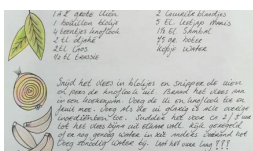 1 à 2 grote uien
1 bouillon blokje
4 teentjes knoflook
2 tl djahé
2 tl laos
½ tl trassie
2 laurierblaadjes
5 el ketjap manis
1½ tl sambal
75 gr. boter
Kopje water
Snijd het vlees in blokjes en snipper de uien
en pers de knoflook uit. Braad het vlees aan
in een koekenpan. Voeg de ui en knoflook toe en
fruit mee. Voeg als de ui glazig is alle overige
ingrediënten toe. Sudderen het voor ca 2 / 3 uur
tot het vlees bijna uit elkaar valt. Kijk geregeld
of er nog genoeg water in zit anders
Voeg water bij. Laat het voor lang !!!